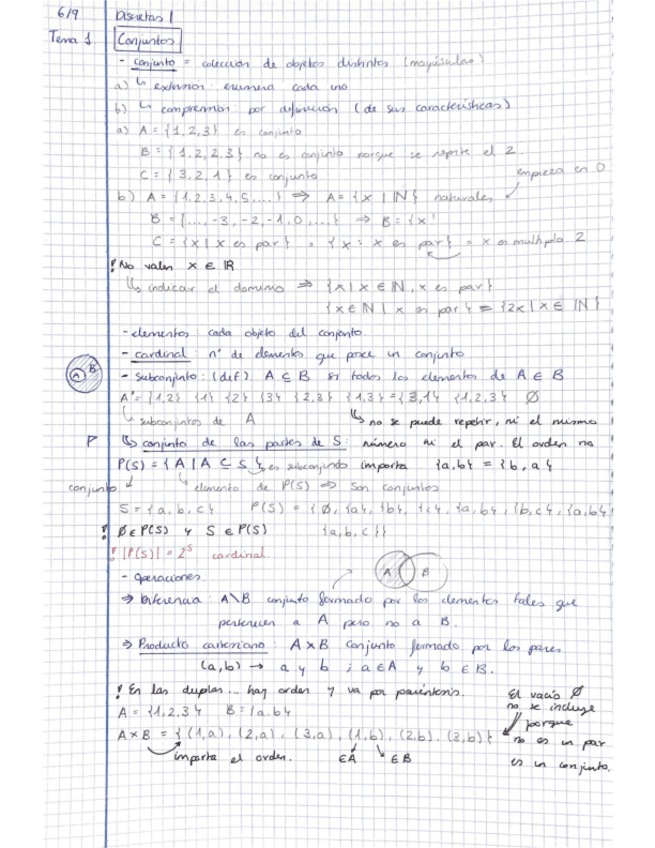 6/9 Discretas 1
Tema 1 Conjuntos
- conjunto = colección de objetos distintos (mayúsculas)
a) ↳ extensión: enumera cada uno
b) ↳ comprensión: por definición (de sus características)
a) A = {1,2,3} es conjunto
B = {1,2,2,3} no es conjunto porque se repite el 2
C = {3,2,1} es conjunto
empieza en 0
b) A = {1,2,3,4,5,...} ⇒ A = {x | ℕ} naturales
B = {...,-3,-2,-1,0,...} ⇒ B = {x
C = {x | x es par} o {x : x es par} o x es multiplo 2
! No vale x ∈ ℝ
↳ indicar el dominio ⇒ {x | x ∈ ℕ, x es par}
{x ∈ ℕ | x es par} = {2x | x ∈ ℕ}
- elementos: cada objeto del conjunto.
- cardinal: nº de elementos que posee un conjunto
A B
- subconjunto: (def) A ⊆ B si todos los elementos de A ∈ B
A = {1,2} {1} {2} {3} {2,3} {1,3} = {3,1} {1,2,3} ∅
↳ subconjuntos de A
↳ no se puede repetir, ni el mismo
P ↳ conjunto de las partes de S: número ni el par. El orden no
P(S) = {A | A ⊆ S} es subconjunto importa {a,b} = {b,a}
conjunto elemento de P(S) ⇒ son conjuntos
S = {a,b,c} P(S) = {∅, {a}, {b}, {c}, {a,b}, {b,c}, {a,b}
! ∅ ∈ P(S) y S ∈ P(S) {a,b,c}}
! |P(S)| = 2^S cardinal
- Operaciones.
A B
⇒ Diferencia: A\B conjunto formado por los elementos tales que
pertenecen a A pero no a B.
⇒ Producto cartesiano: A×B conjunto formado por los pares
(a,b) → a y b ; a ∈ A y b ∈ B.
! En las duplas... hay orden y va por paréntesis.
El vacío ∅
no se incluye
porque
no es un par
es un conjunto.
A = {1,2,3} B = {a,b}
A×B = {(1,a), (2,a), (3,a), (1,b), (2,b), (3,b)}
importa el orden. ∈A ∈B